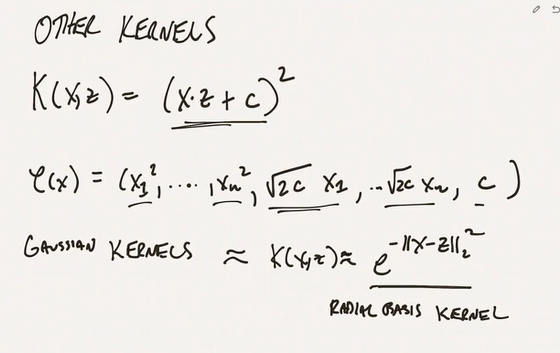 OTHER KERNELS
K(x,z) = (x·z + c)²
φ(x) = (x₁², ...., xₙ², √2c x₁, ..√2c xₙ, c)
GAUSSIAN KERNELS ≈ K(x,z) ≈ e^-||x-z||₂²
RADIAL BASIS KERNEL